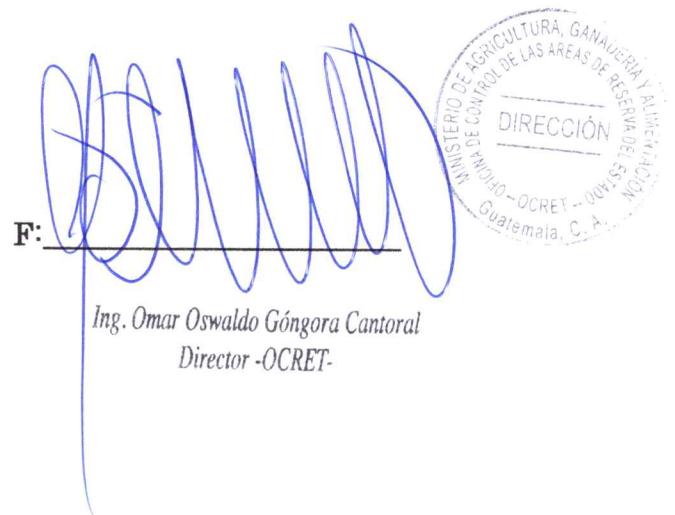 MINISTERIO DE AGRICULTURA, GANADERIA Y ALIMENTACIÓN
OFICINA DE CONTROL DE LAS AREAS DE RESERVA DEL ESTADO
DIRECCIÓN
-OCRET-
Guatemala, C. A.
F:
Ing. Omar Oswaldo Góngora Cantoral
Director -OCRET-